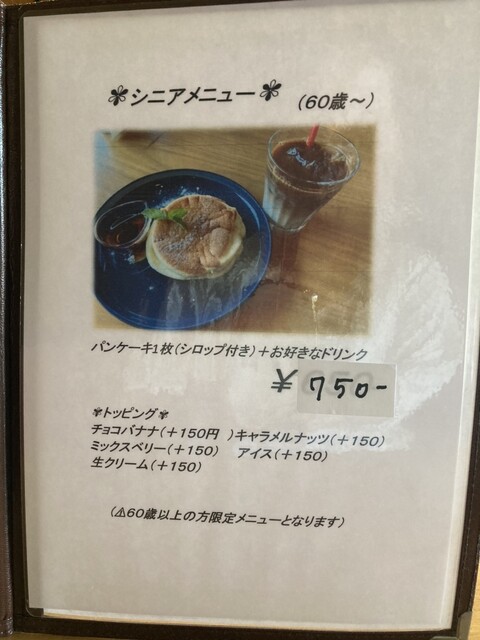 ✾シニアメニュー✾ (60歳～)
パンケーキ1枚(シロップ付き)+お好きなドリンク
¥750-
✾トッピング✾
チョコバナナ(+150円 )キャラメルナッツ(+150)
ミックスベリー(+150) アイス(+150)
生クリーム(+150)
(⚠60歳以上の方限定メニューとなります)